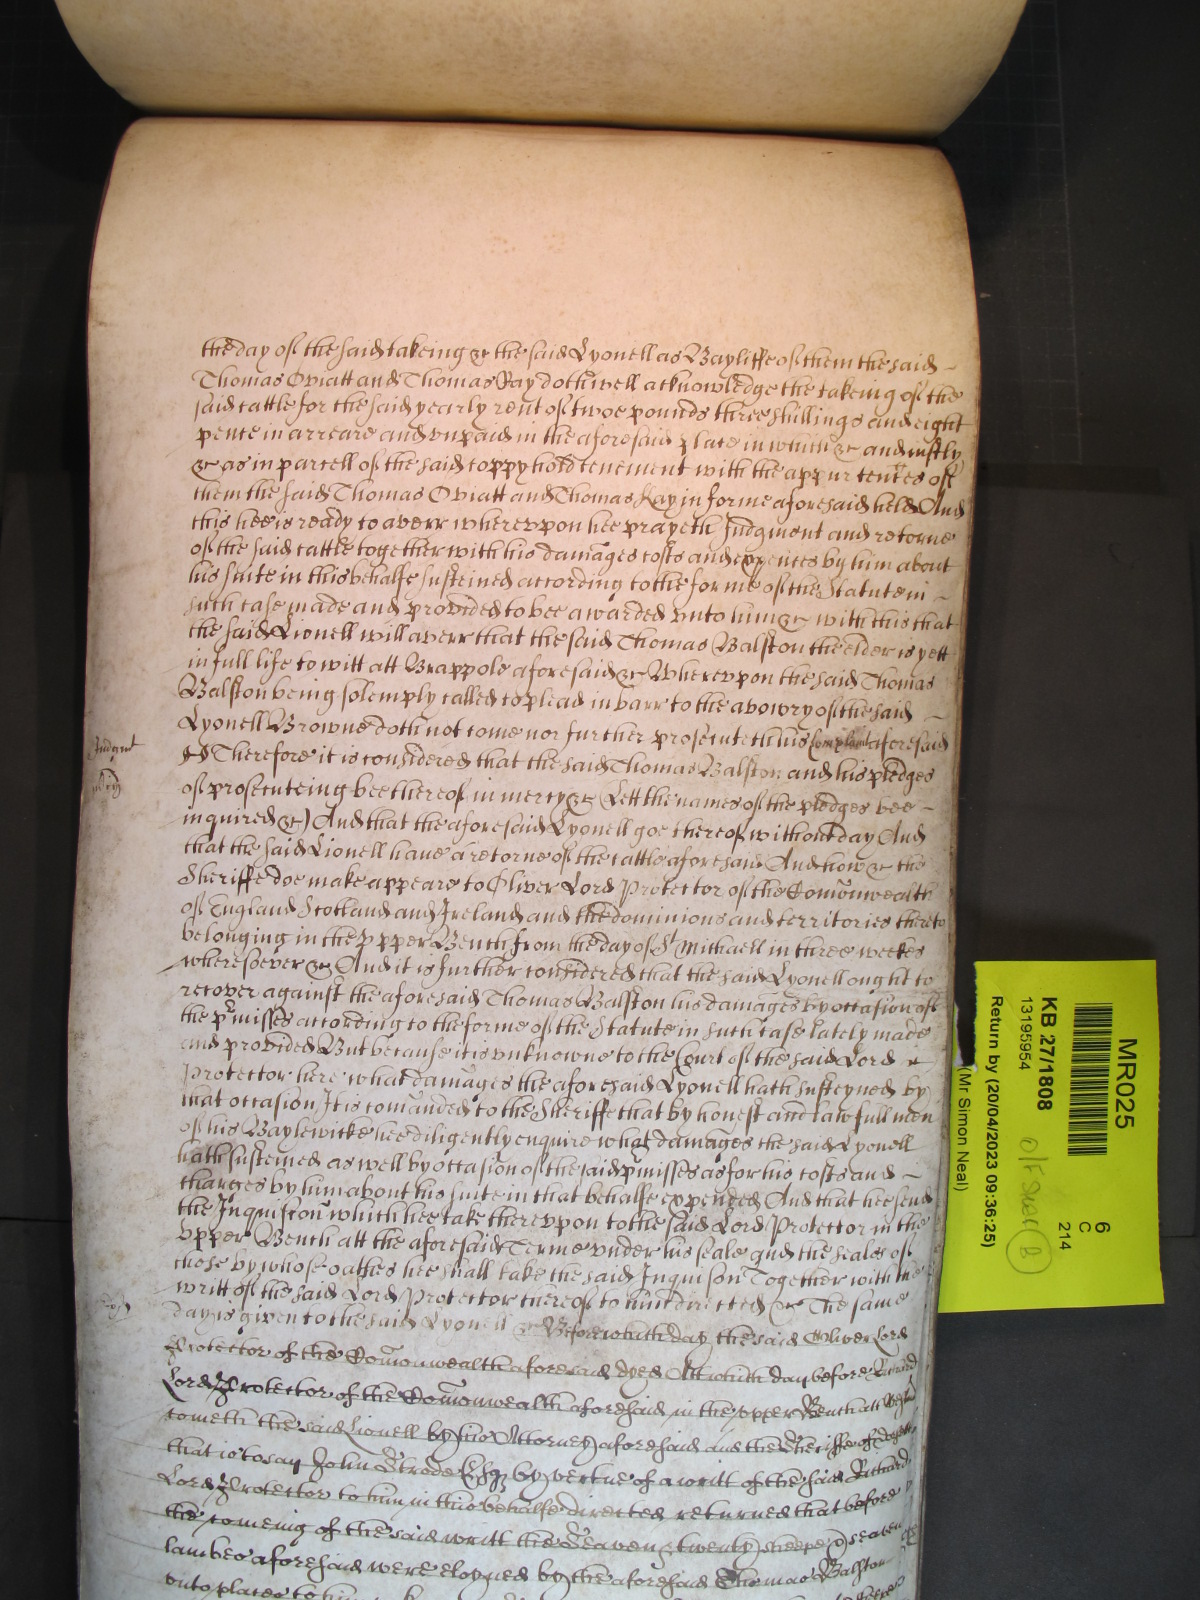 the day of the said takeing &c the said Lyonell as Bayliffe of them the said
Thomas Oviatt and Thomas Ray doth well acknowledge the takeing of the
said cattle for the said yearly rent of twoe pounds three shillings and eight
pence in arreare and unpaid in the aforesaid place in which &c and iustly
&c as in parcell of the said coppyhold tenement with the appurtences of
them the said Thomas Oviatt and Thomas Ray in forme aforesaid held And
this hee is ready to averr wherevpon hee prayeth Judgment and retorne
of the said cattle together with his damages costs and expences by him about
his suite in this behalfe susteined according to the forme of the Statute in
such case made and provided to bee awarded vnto him &c with this that
the said Lionell will averr that the said Thomas Balston the elder is yett
in full life to witt att aforesaid &c Wherevpon the said Thomas
Balston being solemply called to plead in barr to the avowry of the said
Lyonell Browne doth not come nor further prosecuteth his complaint aforesaid
Judgmt
Therefore it is considered that the said Thomas Balston and his pledges
of prosecuteing bee thereof in mercy &c (Lett the names of the pledges bee
inquired &c) And that the aforesaid Lyonell goe thereof without day And
that the said Lionell have a retorne of the cattle aforesaid And how &c the
Sheriffe doe make appeare to Oliver Lord Protector of the Comonwealth
of England Scotland and Ireland and the dominions and territories thereto
belonging in the vpper Bench from the day of St Michaell in three weekes
wheresoever &c And it is further considered that the said Lyonell ought to
recover against the aforesaid Thomas Balston his damages by occasion of
the pmisses according to the forme of the Statute in such case lately made
and provided But because it is vnknowne to the Court of the said Lord
Protector here what damages the aforesaid Lyonell hath susteyned by
that occasion It is comanded to the Sheriffe that by honest and lawfull men
of his Baylewicke hee diligently enquire what damages the said Lyonell
hath susteined as well by occasion of the said pmisses as for his costs and
charges by him about his suite in that behalfe expended And that hee send
the Inquisicon which hee take therevpon to the said Lord Protector in the
vpper Bench att the aforesaid Terme vnder his seale and the seales of
those by whose oathes hee shall take the said Inquisicon Together with the
writt of the said Lord Protector thereof to him directed &c The same
day is given to the said Lyonell &c Before which day the said Oliver Lord
Protector of the Comonwealth aforesaid dyed Att which day before Richard
Lord Protector of the Comonwealth aforesaid in the vpper Bench att
cometh the said Lionell by his Attorney aforesaid and the Sheriffe of
that is to say John Strode Esqr by vertue of a writt of the said Richard
Lord Protector to him in this behalfe directed returned that before
the comeing of the said writt the Seaven & twenty sheepe & seaven
lambes aforesaid were eloyned by the aforesaid Thomas Balston
vnto places to him
MR025
6
C
214
KB 27/1808
13195954
Return by (20/04/2023 09:36:25)
(Mr Simon Neal)